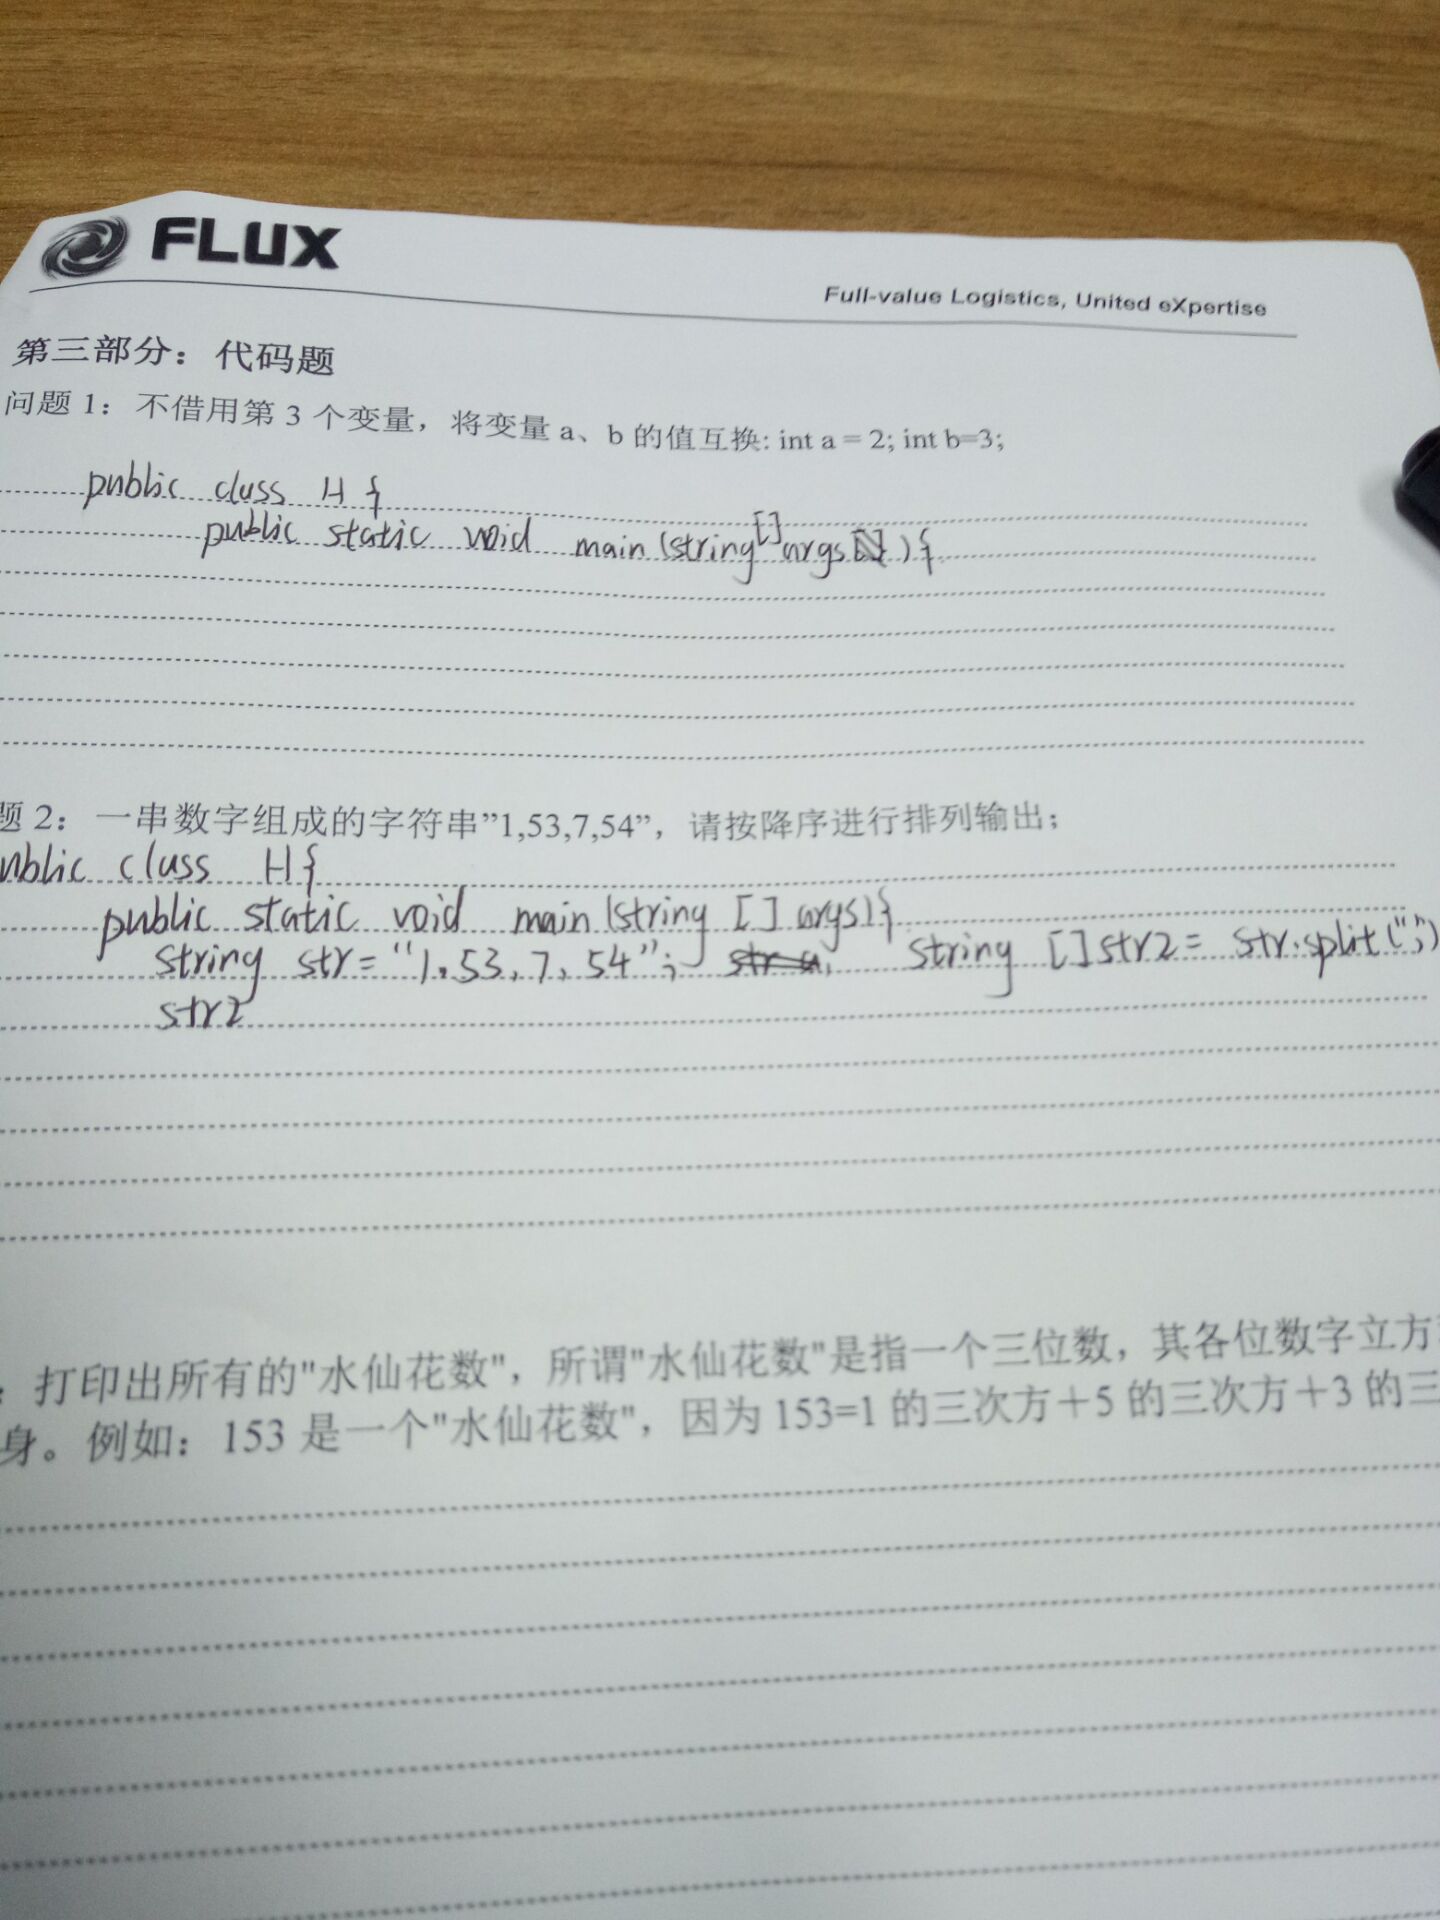 FLUX
Full-value Logistics, United eXpertise
第三部分：代码题
问题 1：不借用第 3 个变量，将变量 a、b 的值互换: int a = 2; int b=3;
public class H {
public static void main (string[] args ) {
题 2：一串数字组成的字符串”1,53,7,54”，请按降序进行排列输出；
ublic class H {
public static void main (string [] args) {
string str = “1,53,7,54”; string [] str2 = str.split(“,”)
str2
：打印出所有的"水仙花数"，所谓"水仙花数"是指一个三位数，其各位数字立方
身。例如：153 是一个"水仙花数"，因为 153=1 的三次方＋5 的三次方＋3 的三